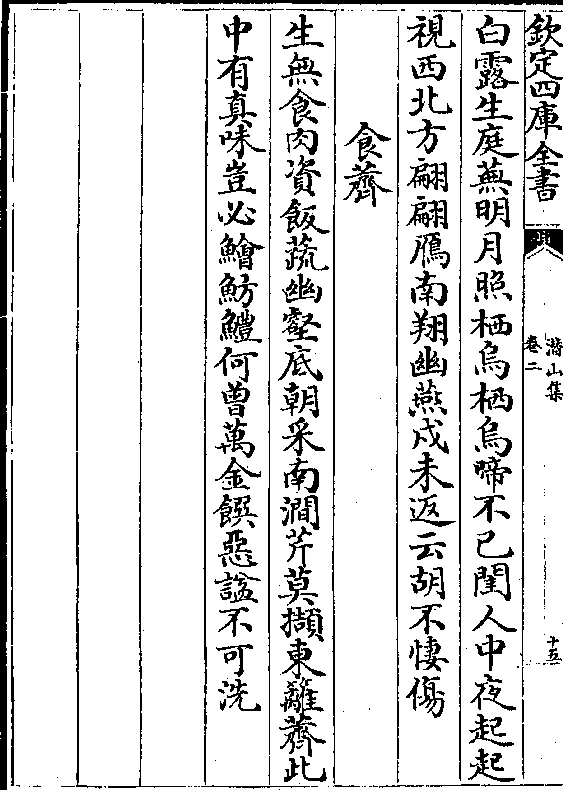 欽定四庫全書
潛山集
卷二
十五
白露生庭蕪明月照栖烏栖烏啼不已閨人中夜起起
視西北方翩翩鴈南翔幽燕戍未返云胡不悽傷
食薺
生無食肉資飯蔬幽壑底朝采南澗芹莫擷東籬薺此
中有真味豈必鱠魴鱧何曾萬金饌惡諡不可洗